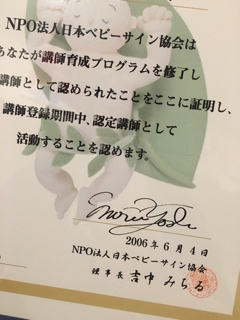 NPO法人日本ベビーサイン協会は
あなたが講師育成プログラムを修了し
講師として認められたことをここに証明し、
講師登録期間中、認定講師として
活動することを認めます。
2006年6月4日
NPO法人日本ベビーサイン協会
理事長 吉中 みちる